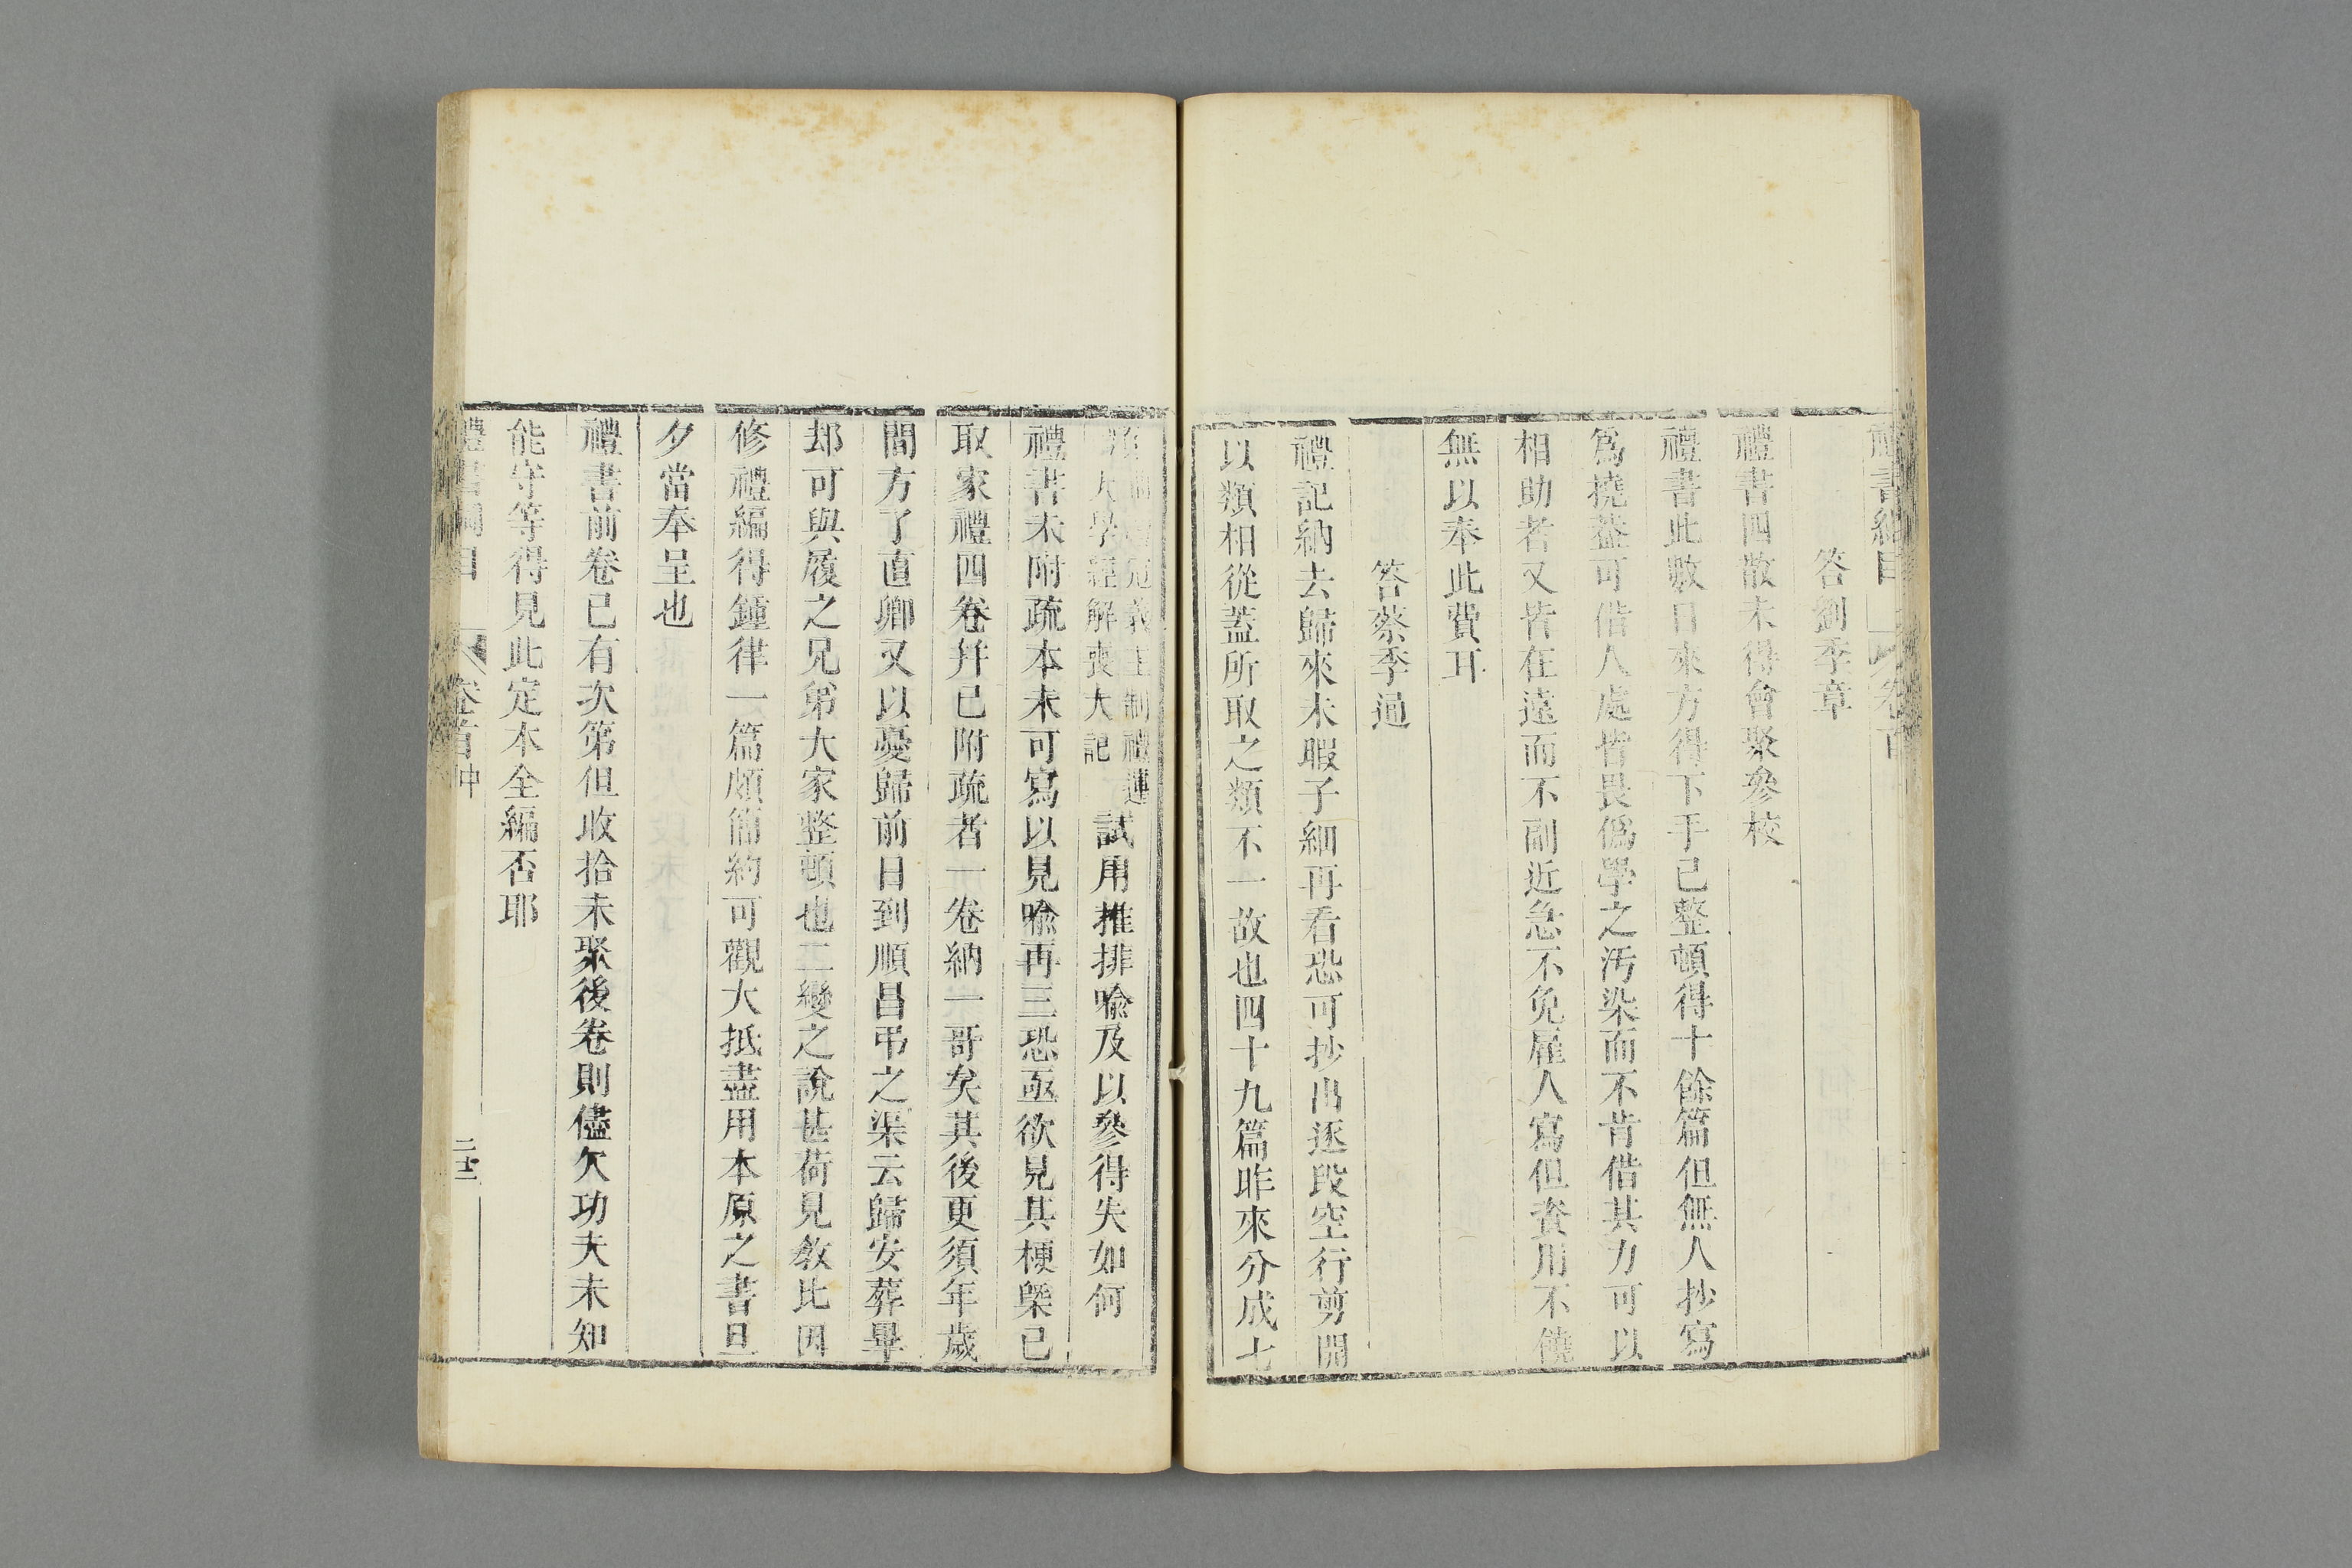 禮書綱目 卷首
答劉季章
禮書四散未得會聚參校
禮書此數日來方得下手已整頓得十餘篇但無人抄寫
爲撓蓋可借人處皆畏僞學之汚染而不肯借其力可以
相助者又皆在遠而不副近急不免雇人寫但資用不饒
無以奉此費耳
答蔡季通
禮記納去歸來未暇子細再看恐可抄出逐段空行剪開
以類相從蓋所取之類不一故也四十九篇昨來分成七
冠義王制禮運
大學經解喪大記 試用推排喩及以參得失如何
禮書未附疏本未可寫以見喩再三恐亟欲見其梗槩已
取家禮四卷幷已附疏者一卷納一哥矣其後更須年歲
間方了直卿又以憂歸前日到順昌弔之渠云歸安葬畢
却可與履之兄弟大家整頓也二變之說甚荷見敎比因
修禮編得鍾律一篇頗簡約可觀大抵盡用本原之書旦
夕當奉呈也
禮書前卷已有次第但收拾未聚後卷則儘欠功夫未知
能守等得見此定本全編否耶
禮書綱目 卷首中 二十三